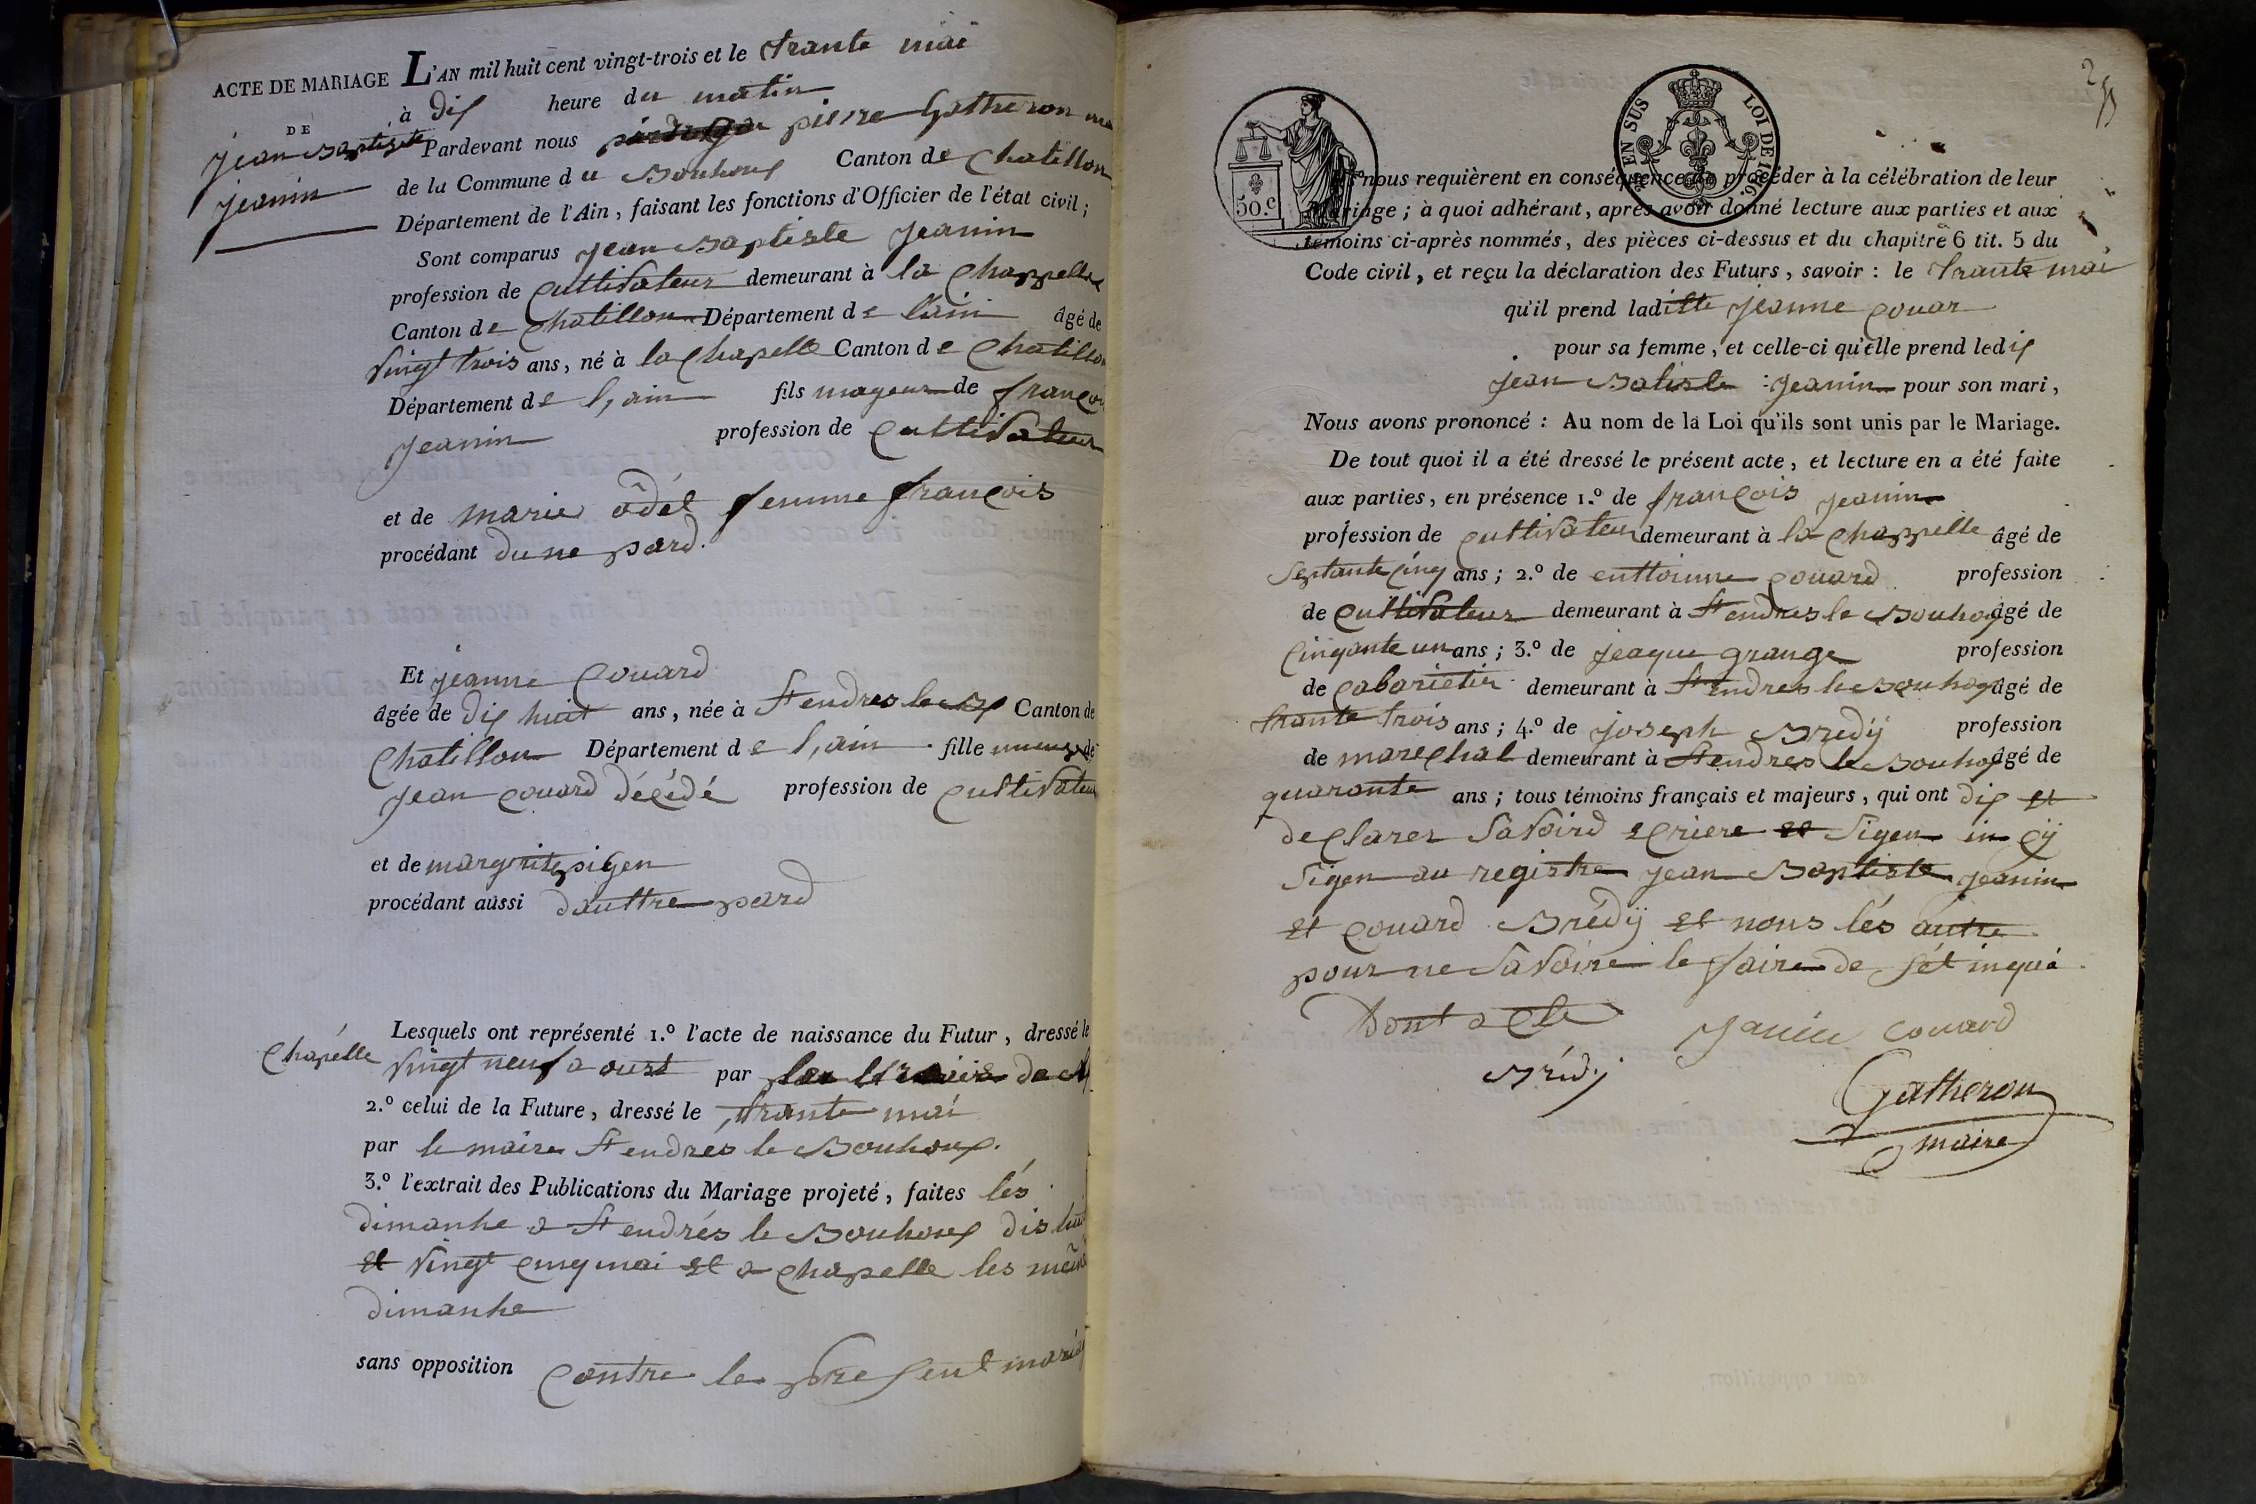 ACTE DE MARIAGE
DE
jean Baptiste
jeanin
L'AN mil huit cent vingt-trois et le trante mai
à dix heure du matin
Pardevant nous pierre Gatheron
de la Commune du Bouhoux Canton de Chatillon
Département de l'Ain, faisant les fonctions d'Officier de l'état civil;
Sont comparus jean Baptiste jeanin
profession de cultivateur demeurant à la Chappelle
Canton de Chatillon Département de l'ain âgé de
vingt trois ans, né à la Chapelle Canton de Chatillon
Département de l,ain fils mageur de françois
jeanin profession de cultivateur
et de marie odet femme françois
procédant dune pard.
Et jeanne Couard
âgée de dix huit ans, née à St endres le Canton de
Chatillon Département de l,ain fille de
jean couard décédé profession de cultivateur
et de margrite pigen
procédant aussi dauttre pard
Lesquels ont représenté 1.º l'acte de naissance du Futur, dressé le
Chapélle vingt neuf aoust par
2.º celui de la Future, dressé le trante mai
par le maire St endrés le Bouhoux.
3.º l'extrait des Publications du Mariage projeté, faites lés
dimanhe a St endrés le Bouhoux dis huit
et vingt cinq mai et a Chapelle les
dimanhe
sans opposition contre le present
50.c
EN SUS
LOI DE 1816.
nous requièrent en conséquence de procéder à la célébration de leur
Mariage; à quoi adhérant, après avoir donné lecture aux parties et aux
témoins ci-après nommés, des pièces ci-dessus et du chapitre 6 tit. 5 du
Code civil, et reçu la déclaration des Futurs, savoir: le trante mai
qu'il prend laditte jeanne couar
pour sa femme, et celle-ci qu'elle prend ledix
jean Batiste jeanin pour son mari,
Nous avons prononcé: Au nom de la Loi qu'ils sont unis par le Mariage.
De tout quoi il a été dressé le présent acte, et lecture en a été faite
aux parties, en présence 1.º de françois jeanin
profession de cultivateur demeurant à la Chappelle âgé de
septante cinq ans; 2.º de enttoinne couard profession
de cultivateur demeurant à St endres le Bouhoux âgé de
cinqante un ans; 3.º de jeaque grange profession
de cabarietier demeurant à St endres le Bouhoux âgé de
trante trois ans; 4.º de joseph Bredij profession
de marechal demeurant à St endres le Bouhoux âgé de
quarante ans; tous témoins français et majeurs, qui ont dix et
declarer savoird ecriere et sigen
sigen au registre jean Baptiste jeanin
et couard Brédij et nous lés autre
pour ne savoire le faire de
Dont acte
couard
Brédij
Gatheron
maire